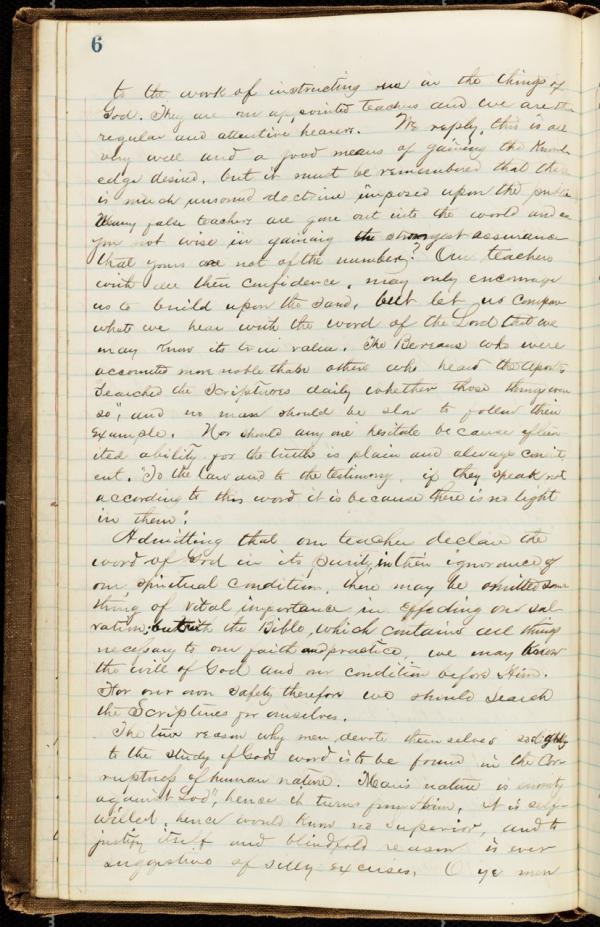 6
to the work of instructing us in the things of
God. They are our appointed teachers and we are the
regular and attentive hearers. We reply, this is all
very well and a good means of gaining the knowl-
edge desired, but it must be remembered that there
is much unsound doctrine imposed upon the public
Many false teachers are gone out into the world and are
you not wise in gaining the strongest assurance
that yours are not of the number? Our teachers
with all their confidence, may only encourage
us to build upon the sand, but let us compare
what we hear with the word of the Lord that we
may know its true value. The Bereans who were
accounted more noble than others who heard the Apostles
"searched the Scriptures daily whether those things were
so", and no man should be slow to follow their
example. Nor should any one hesitate because of lim-
ited ability for the truth is plain and always consist-
ent. "To the law and to the testimony, if they speak not
according to this word it is because there is no light
in them".
Admitting that our teacher declare the
word of God in its purity, in their ignorance of
our spiritual condition, there may be omitted some
thing of vital importance in effecting our sal-
vation; but with the Bible, which contains all things
necessary to our faith and practice, we may know
the will of God and our condition before Him.
For our own safety therefore we should search
the Scriptures for ourselves.
The true reason why men devote themselves so lightly
to the study of God's word is to be found in the cor-
ruptness of human nature. Man's nature is enmity
against God", hence it turns from Him, it is self-
willed, hence would know no superior, and to
justify itself and blindfold reason is ever
suggestive of silly excuses. O ye men